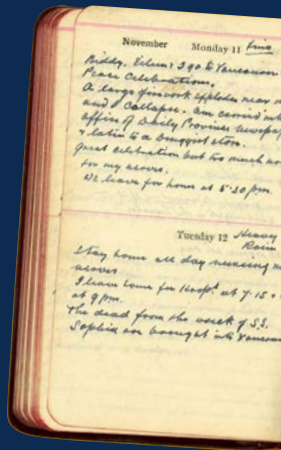 November Monday 11 Fine
Biddy, Eileen & I go to Vancouver
Peace Celebrations.
A large firework explodes near m
and I collapse. Am carried into
office of Daily Province newspap
& later to a Druggist store.
great celebration but too much
for my nerves.
We leave for home at 5.30 pm
Tuesday 12 Heavy
Rain
Stay home all day nursing m
nerves
I leave home for Hospl at 7.15
at 9 pm.
The dead from the wreck of S.S.
Sophia are brought into Vancouv